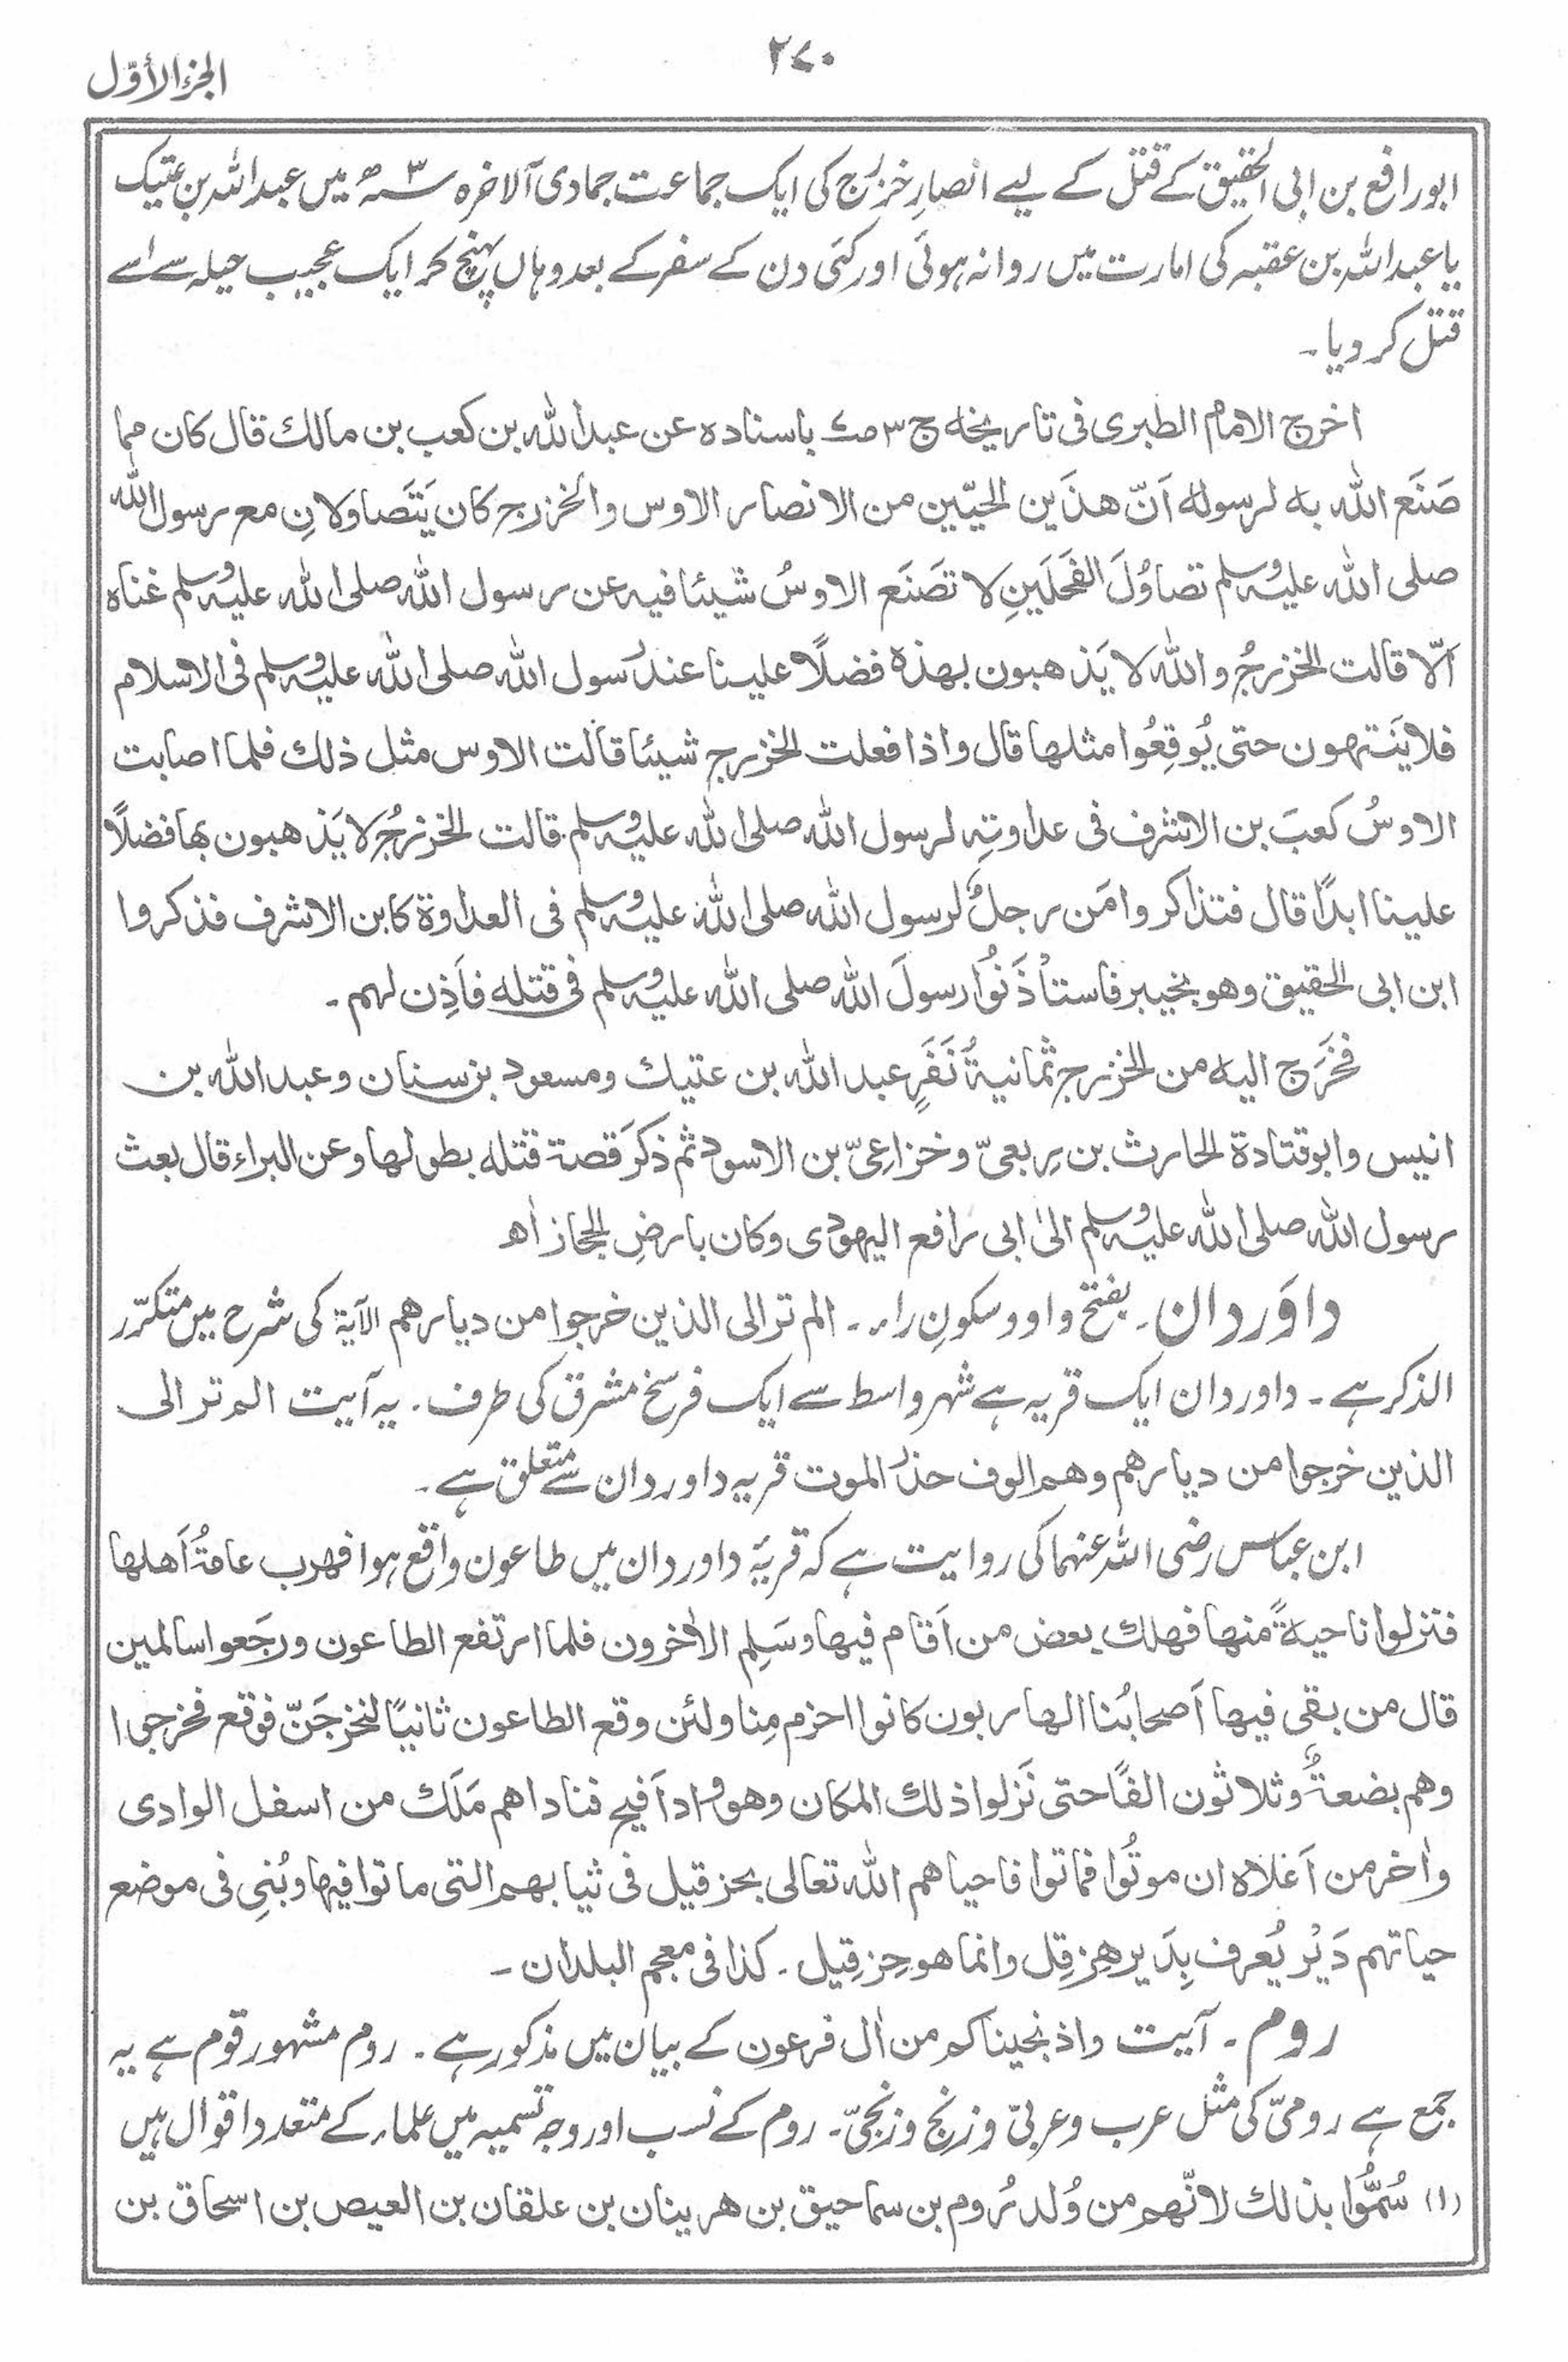 ۲۷۰
الجزء الأوّل
ابورافع بن ابی الحقیق کے قتل کے لیے انصارِ خزرج کی ایک جماعت جمادی الآخرہ ۳ھ میں عبداللہ بن عتیک
یا عبداللہ بن عقبہ کی امارت میں روانہ ہوئی اور کئی دن کے سفر کے بعد وہاں پہنچ کر ایک عجیب حیلہ سے اسے
قتل کر دیا ۔
اخرج الامام الطبری فی تاریخہ ج ۳ ص۷ باسنادہ عن عبداللہ بن کعب بن مالك قال کان مما
صَنَع اللہ بہ لرسولہ اَنّ ھذَین الحیّین من الانصار الاوس والخزرج کان یَتَصاولانِ مع رسول اللہ
صلی اللہ علیہ وسلم تصاوُلَ الفَحلَینِ لا تَصنَع الاوسُ شیئا فیہ عن رسول اللہ صلی اللہ علیہ وسلم غناہ
اَلّا قالت الخزرجُ واللہ لا یَذھبون بھذہ فضلًا علینا عند رسول اللہ صلی اللہ علیہ وسلم فی الاسلام
فلا یَنتھون حتی یُوقِعُوا مثلھا قال واذا فعلت الخزرج شیئا قالت الاوس مثل ذلك فلما اصابت
الاوسُ کعبَ بن الاشرف فی عداوتِہ لرسول اللہ صلی اللہ علیہ وسلم قالت الخزرجُ لا یَذھبون بھا فضلًا
علینا ابدًا قال فتذاکروا مَن رجلٌ لرسول اللہ صلی اللہ علیہ وسلم فی العداوۃ کابن الاشرف فذکروا
ابن ابی الحقیق وھو بخیبر فاستأذَنُوا رسولَ اللہ صلی اللہ علیہ وسلم فی قتلہ فاَذِن لھم ۔
فخَرَج الیہ من الخزرج ثمانیۃُ نَفَرٍ عبد اللہ بن عتیك ومسعود بن سنان وعبد اللہ بن
انیس وابو قتادۃ الحارث بن رِبعیّ وخزاعِیّ بن الاسود ثم ذکَر قصۃ قتلہ بطولھا وعن البراء قال بعث
رسول اللہ صلی اللہ علیہ وسلم الیٰ ابی رافع الیھودی وکان بارضِ الحجاز اھ
داوَردان ۔ بفتح واو وسکونِ راء ۔ الم تر الی الذین خرجوا من دیارھم الآیۃ کی شرح میں متکرّر
الذکر ہے ۔ داوردان ایک قریہ ہے شہر واسط سے ایک فرسخ مشرق کی طرف ۔ یہ آیت الم تر الی
الذین خرجوا من دیارھم وھم الوف حذر الموت قریہ داوردان سے متعلق ہے ۔
ابن عباس رضی اللہ عنہما کی روایت ہے کہ قریۂ داوردان میں طاعون واقع ہوا فھرب عامۃُ اَھلھا
فنزلوا ناحیۃً منھا فھلك بعض من اَقام فیھا وسَلِم الاٰخرون فلما ارتفع الطاعون ورجَعوا سالمین
قال من بقی فیھا اَصحابُنا الھاربون کانوا احزم مِنا ولئن وقع الطاعون ثانیًا لنخرجَنّ فوقع فخرجوا
وھم بضعۃٌ وثلاثون الفًا حتی نَزلوا ذلك المکان وھو واد اَفیح فناداھم مَلَك من اسفل الوادی
واٰخر من اَعلاہ ان موتُوا فماتوا فاحیاھم اللہ تعالی بحزقیل فی ثیابھم التی ماتوا فیھا وبُنِی فی موضع
حیاتھم دَیْر یُعرف بِدَیر ھِزقِل وانما ھو حِزقِیل ۔ کذا فی معجم البلدان ۔
روم ۔ آیت واذ نجیناکم من اٰل فرعون کے بیان میں مذکور ہے ۔ روم مشہور قوم ہے یہ
جمع ہے رومیّ کی مثل عرب وعربیّ وزنج وزنجیّ ۔ روم کے نسب اور وجہ تسمیہ میں علماء کے متعدد اقوال ہیں
(۱) سُمُّوا بذلك لانّھم من وُلد رُوم بن سماحیق بن ھرینان بن علقان بن العیص بن اسحاق بن